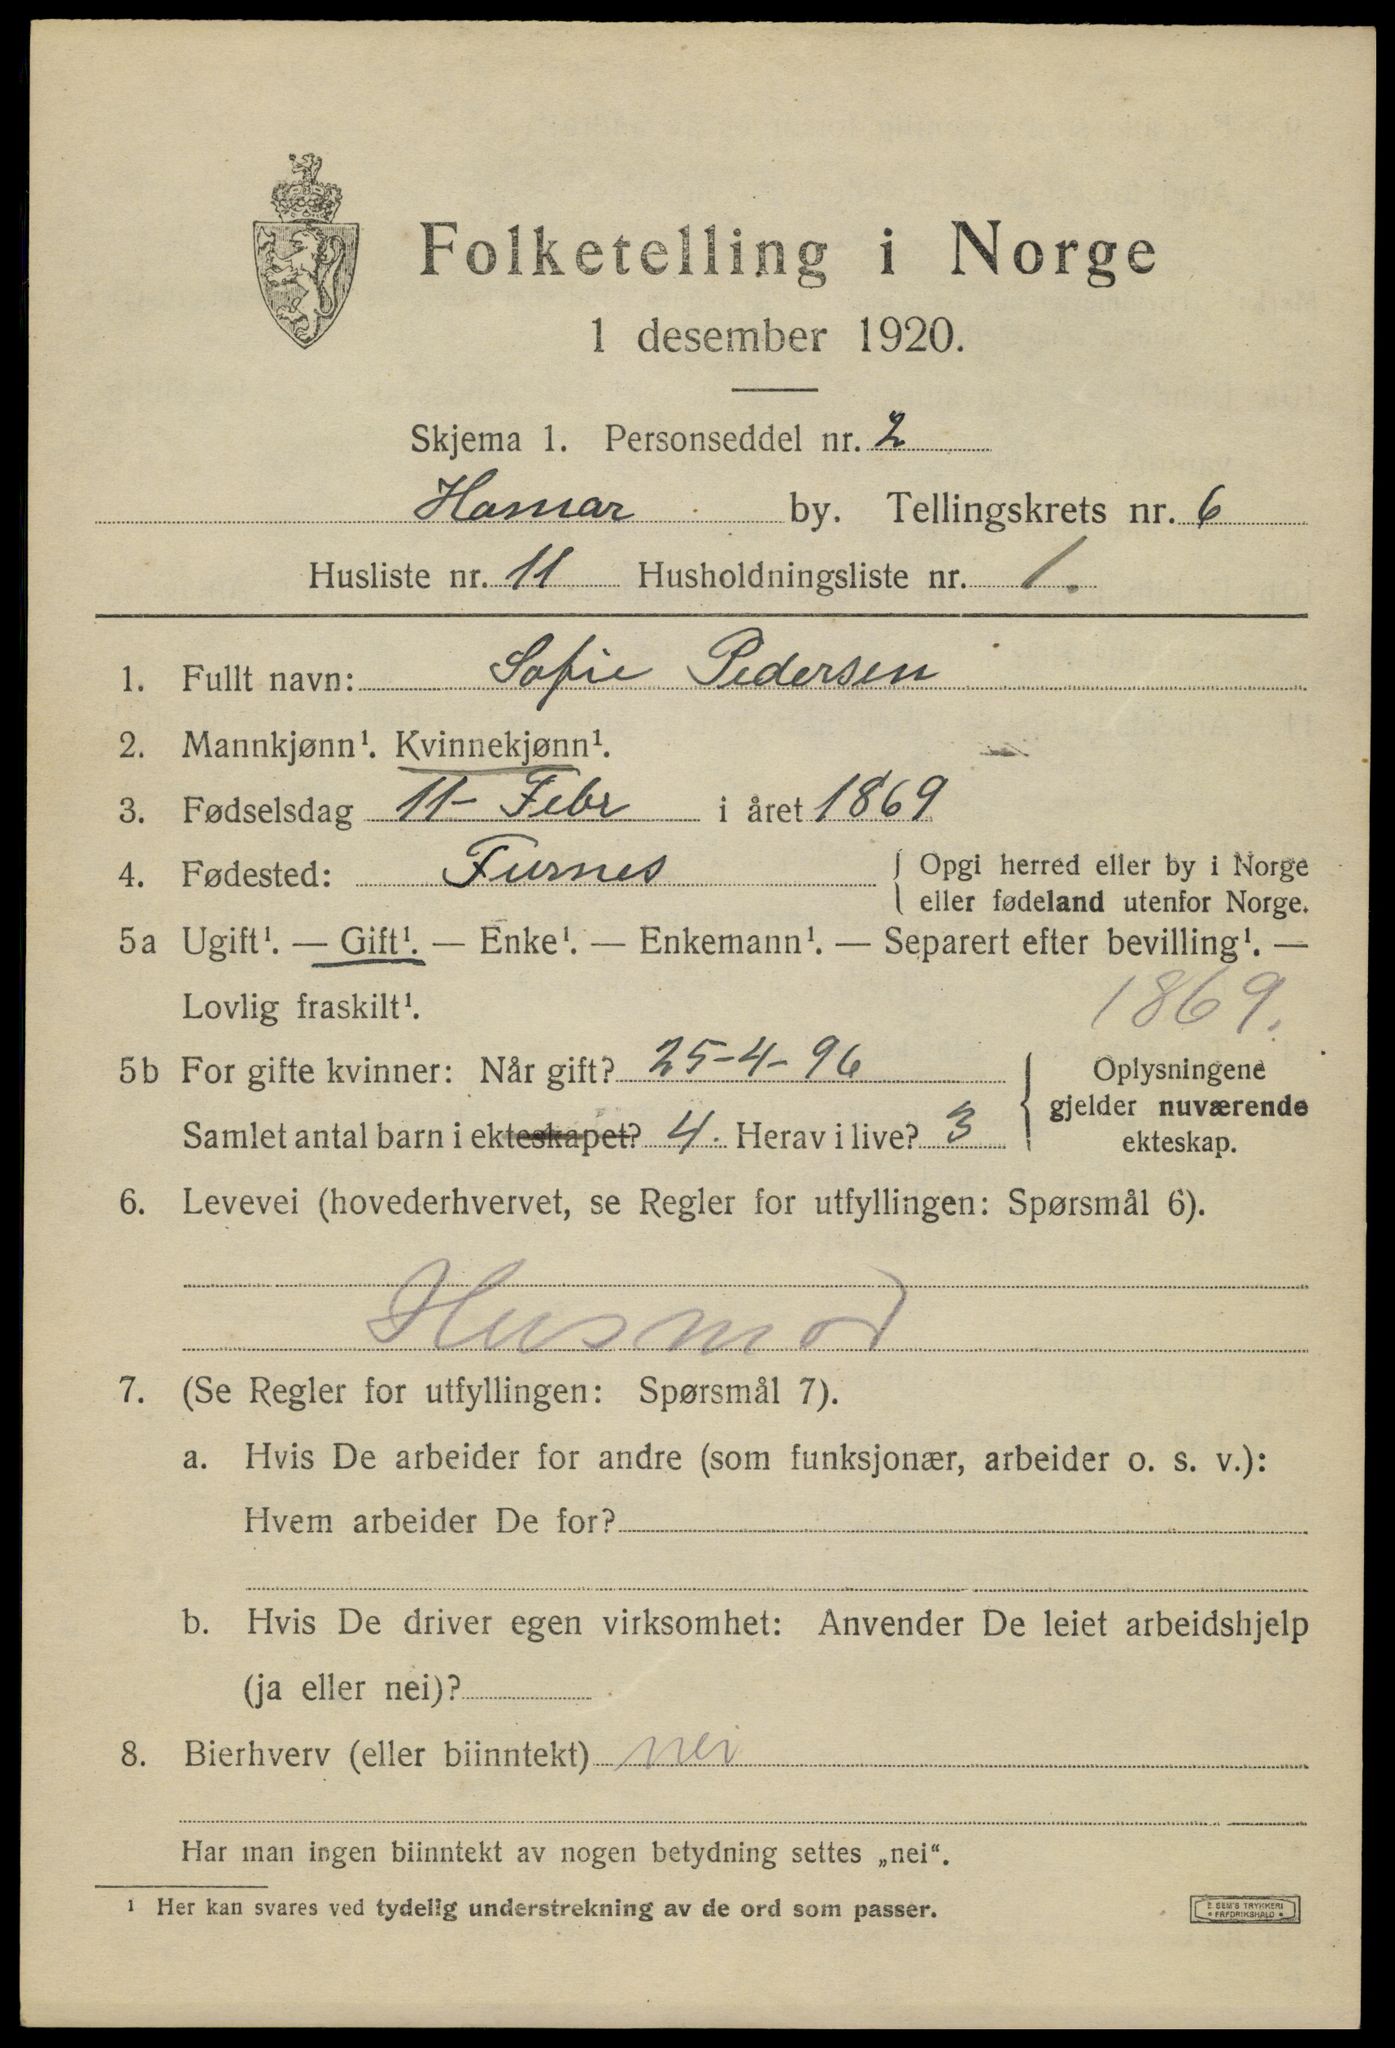 Folketelling i Norge
1 desember 1920.
Skjema 1. Personseddel nr. 2
Hamar by. Tellingskrets nr. 6
Husliste nr. 11 Husholdningsliste nr. 1.
1. Fullt navn: Sofie Pedersen
2. Mannkjønn¹. Kvinnekjønn¹.
3. Fødselsdag 11- Febr i året 1869
4. Fødested: Furnes { Opgi herred eller by i Norge
eller fødeland utenfor Norge.
5a Ugift¹. — Gift¹. — Enke¹. — Enkemann¹. — Separert efter bevilling¹. —
Lovlig fraskilt¹. 1869.
5b For gifte kvinner: Når gift? 25-4-96 { Oplysningene
gjelder nuværende
ekteskap.
Samlet antal barn i ekteskapet? 4. Herav i live? 3
6. Levevei (hovederhvervet, se Regler for utfyllingen: Spørsmål 6).
Husmor
7. (Se Regler for utfyllingen: Spørsmål 7).
a. Hvis De arbeider for andre (som funksjonær, arbeider o. s. v.):
Hvem arbeider De for?
b. Hvis De driver egen virksomhet: Anvender De leiet arbeidshjelp
(ja eller nei)?
8. Bierhverv (eller biinntekt) nei
Har man ingen biinntekt av nogen betydning settes „nei“.
¹ Her kan svares ved tydelig understrekning av de ord som passer.
E. SEM'S TRYKKERI
FREDRIKSHALD